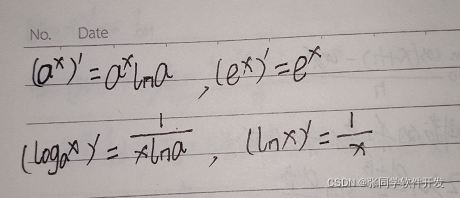 No. Date
(aˣ)' = aˣlna , (eˣ)' = eˣ
(logₐx)' = 1/(xlna) , (lnx)' = 1/x
CSDN @张同学软件开发